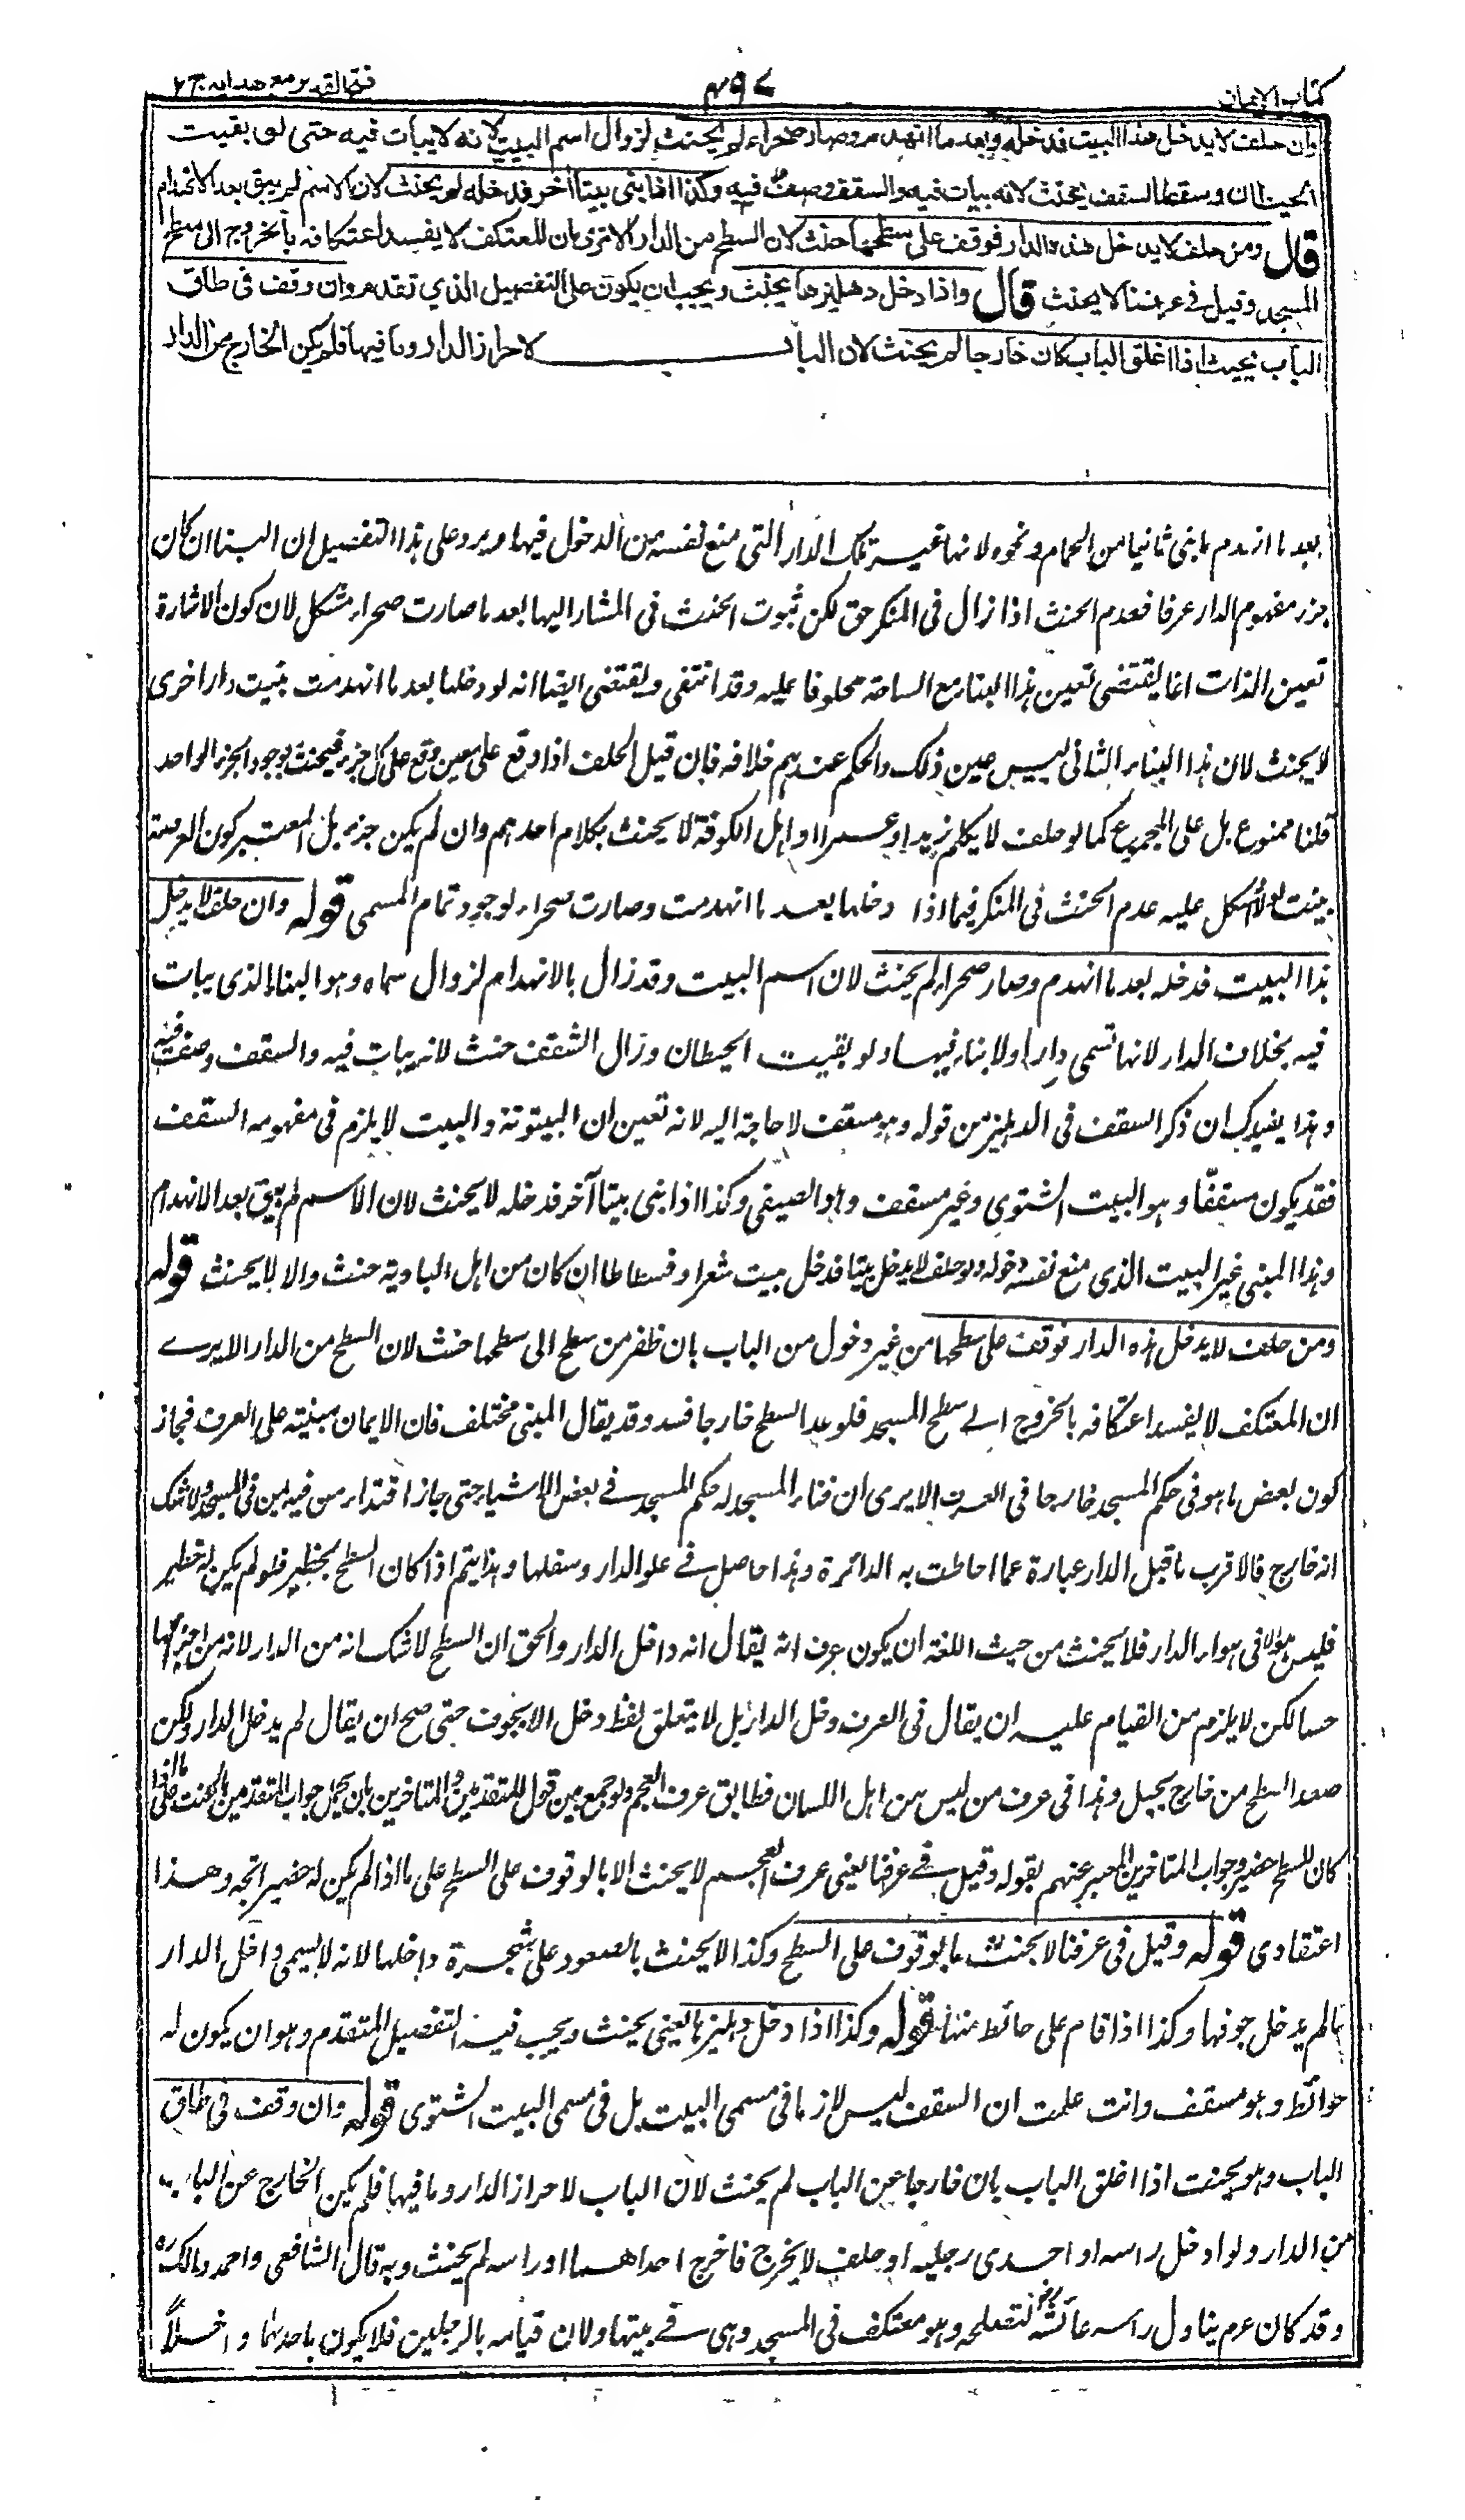 كتاب الايمان
٤٩٧
فتح القدير مع هدايه ج ٢
وان حلف لا يدخل هذا البيت فدخله بعد ما انهدم وصار صحراء لم يحنث لزوال اسم البيت لانه لا يبات فيه حتى لو بقيت
الحيطان وسقط السقف يحنث لانه يبات فيه والسقف وصف فيه وكذا اذا بنى بيتا اخر فدخله لم يحنث لان الاسم لم يبق بعد الانهدام
قال ومن حلف لا يدخل هذه الدار فوقف على سطحها حنث لان السطح من الدار الا ترى ان المعتكف لا يفسد اعتكافه بالخروج الى سطح
المسجد وقيل في عرفنا لا يحنث قال واذا دخل دهليزها يحنث ويجب ان يكون على التفصيل الذي تقدم وان وقف في طاق
الباب بحيث اذا اغلق الباب كان خارجا لم يحنث لان الباب لاحراز الدار وما فيها فلم يكن الخارج من الدار
بعد ما انهدم ما بنى ثانيا من الحمام ونحوه لانها غير تلك الدار التي منع نفسه من الدخول فيها ويرد على هذا التفصيل ان البناء ان كان
جزء مفهوم الدار عرفا فعدم الحنث اذا زال في المنكر حق لكن ثبوت الحنث في المشار اليها بعد ما صارت صحراء مشكل لان كون الاشارة
تعين الذات انما يقتضى تعين هذا البناء مع الساحة محلوفا عليه وقد انتفى ويقتضى ايضا انه لو دخلها بعد ما انهدمت بنيت دارا اخرى
لا يحنث لان هذا البناء الثانى ليس عين ذلك والحكم عندهم خلافه فان قيل الحلف اذا وقع على معين وقع على كل جزء فيحنث بوجود الجزء الواحد
قلنا ممنوع بل على المجموع كما لو حلف لا يكلم زيدا وعمرا او اهل الكوفة لا يحنث بكلام احدهم وان لم يكن جزء بل المعتبر كون العرصة
بنيت اولا اشكل عليه عدم الحنث فى المنكر فيما اذا دخلها بعد ما انهدمت وصارت صحراء لوجود تمام المسمى قوله وان حلف لا يدخل
هذا البيت فدخله بعد ما انهدم وصار صحراء لم يحنث لان اسم البيت وقد زال بالانهدام لزوال سماه وهو البناء الذى يبات
فيه بخلاف الدار لانها تسمى دارا ولا بناء فيها ولو بقيت الحيطان وزال السقف حنث لانه يبات فيه والسقف وصف فيه
وهذا يفيدك ان ذكر السقف فى الدهليز من قوله وهو مسقف لا حاجة اليه لانه تعين ان البيتوتة والبيت لا يلزم فى مفهومه السقف
فقد يكون مسقفا وهو البيت الشتوى وغير مسقف وهو الصيفى وكذا اذا بنى بيتا آخر فدخله لا يحنث لان الاسم لم يبق بعد الانهدام
وهذا المبنى غير البيت الذى منع نفسه دخوله ولو حلف لا يدخل بيتا فدخل بيت شعر او فسطاطا ان كان من اهل البادية حنث والا لا يحنث قوله
ومن حلف لا يدخل هذه الدار فوقف على سطحها من غير دخول من الباب بان ظفر من سطح الى سطحها حنث لان السطح من الدار الا يرى
ان المعتكف لا يفسد اعتكافه بالخروج الى سطح المسجد فلو عد السطح خارجا فسد وقد يقال المبنى مختلف فان الايمان مبنية على العرف فجاز
كون بعض ما هو فى حكم المسجد خارجا فى العرف الا يرى ان فناء المسجد له حكم المسجد فى بعض الاشياء حتى جاز اقتداء من فيه بمن فى المسجد ولا شك
انه خارج فالاقرب ما قيل الدار عبارة عما احاطت به الدائرة وهذا حاصل فى علو الدار وسفلها وهذا يتم اذا كان السطح بحظير فلو لم يكن له حظير
فليس هو الا فى هواء الدار فلا يحنث من حيث اللغة الا ان يكون عرف انه يقال انه داخل الدار والحق ان السطح لا شك انه من الدار لانه من اجزائها
حسا لكن لا يلزم من القيام عليه ان يقال فى العرف دخل الدار بل لا يتعلق لفظ دخل الا بجوف حتى صح ان يقال لم يدخل الدار ولكن
صعد السطح من خارج بحبل وهذا فى عرف من ليس من اهل اللسان فطابق عرف العجم ولو جمع بين قول المتقدمين والمتاخرين بان يحمل جواب المتقدمين بالحنث على ما اذا
كان للسطح حضير وجواب المتاخرين المعبر عنهم بقوله وقيل فى عرفنا يعنى عرف العجم لا يحنث الا بالوقوف على السطح على ما اذا لم يكن له حضير اتجه وهذا
اعتقادى قوله وقيل فى عرفنا لا يحنث بالوقوف على السطح وكذا لا يحنث بالصعود على شجرة داخلها لانه لا يسمى داخل الدار
ما لم يدخل جوفها وكذا اذا قام على حائط منها قوله وكذا اذا دخل دهليزها يعنى يحنث ويجب فيه التفصيل المتقدم وهو ان يكون له
حوائط وهو مسقف وانت علمت ان السقف ليس لازما فى مسمى البيت بل فى مسمى البيت الشتوى قوله وان وقف فى طاق
الباب وهو بحيث اذا اغلق الباب بان خارجا عن الباب لم يحنث لان الباب لاحراز الدار وما فيها فلم يكن الخارج عن الباب
من الدار ولو ادخل راسه او احدى رجليه او حلف لا يخرج فاخرج احداهما او راسه لم يحنث وبه قال الشافعى واحمد ومالك
وقد كان عم يناول راسه عائشة لتصلحه وهو معتكف فى المسجد وهى فى بيتها ولان قيامه بالرجلين فلا يكون باحدهما داخلا